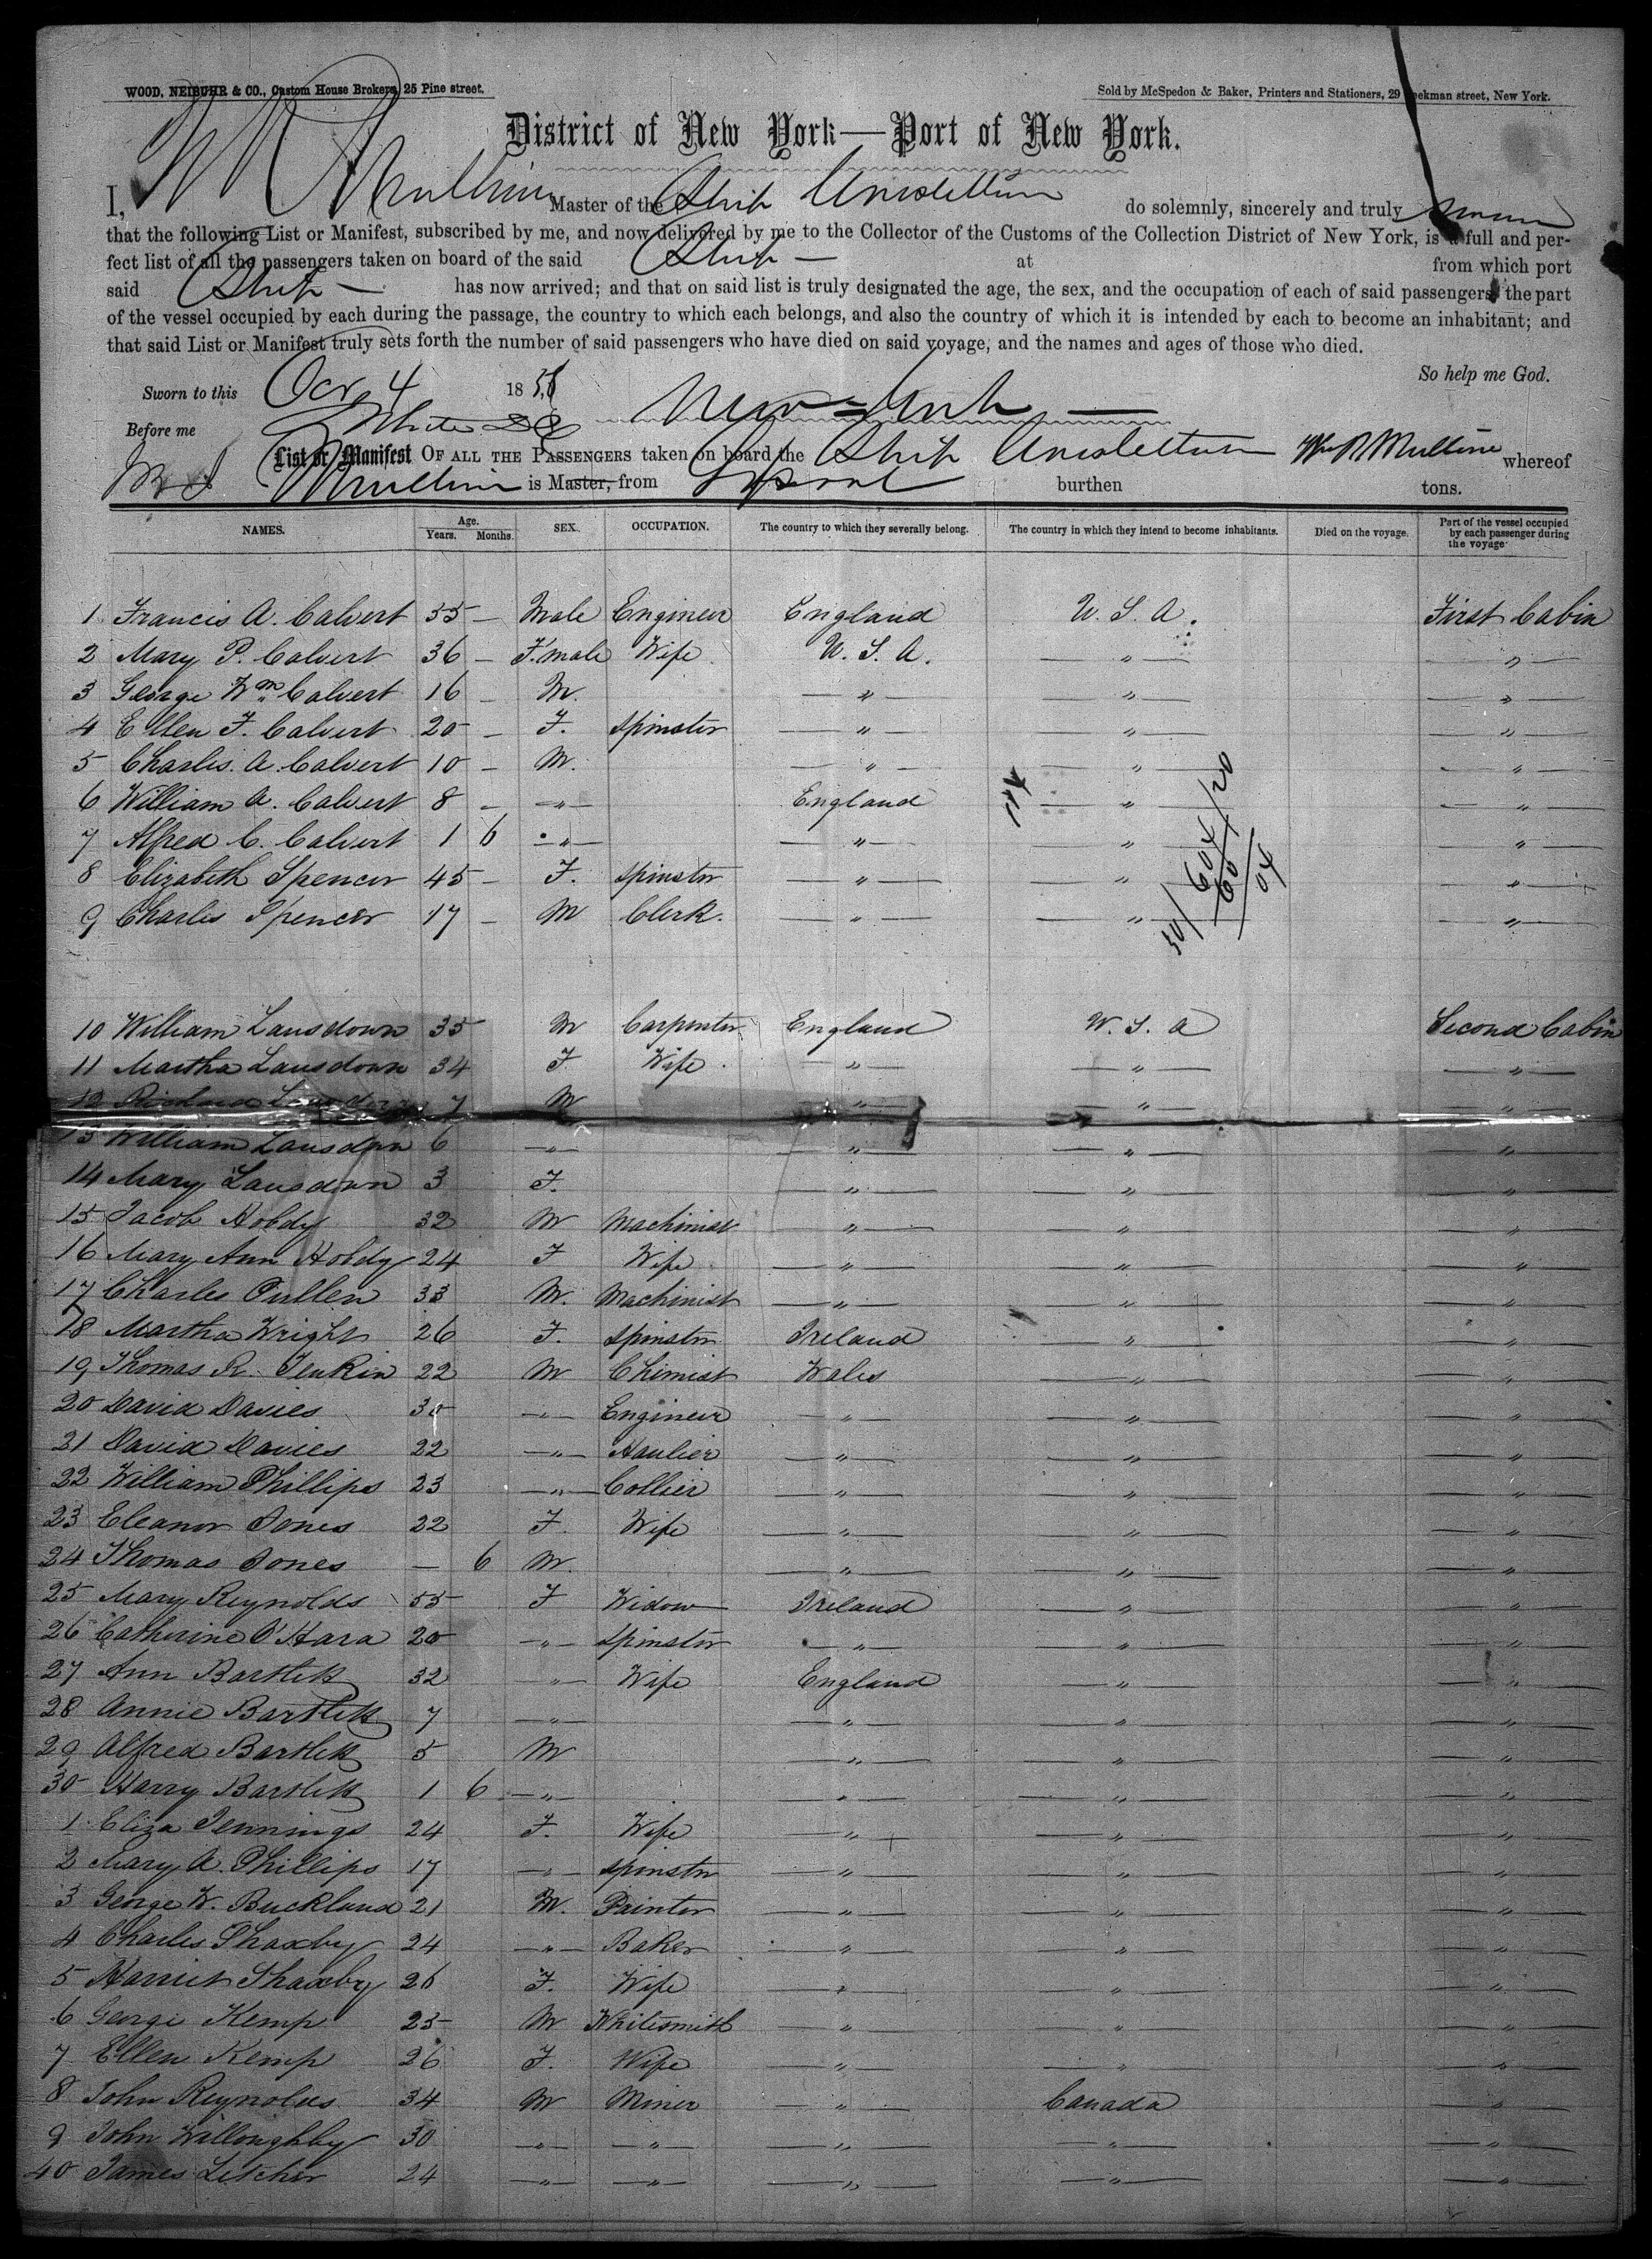 WOOD, NEIBUHR & CO., Custom House Brokers, 25 Pine street.
Sold by McSpedon & Baker, Printers and Stationers, 29 Beekman street, New York.
District of New York—Port of New York.
I, Master of the Ship do solemnly, sincerely and truly swear
that the following List or Manifest, subscribed by me, and now delivered by me to the Collector of the Customs of the Collection District of New York, is a full and per-
fect list of all the passengers taken on board of the said Ship — at from which port
said Ship — has now arrived; and that on said list is truly designated the age, the sex, and the occupation of each of said passengers, the part
of the vessel occupied by each during the passage, the country to which each belongs, and also the country of which it is intended by each to become an inhabitant; and
that said List or Manifest truly sets forth the number of said passengers who have died on said voyage, and the names and ages of those who died.
So help me God.
Sworn to this Oct 4 18
Before me
List or Manifest OF ALL THE PASSENGERS taken on board the Ship Wm R Mulliner whereof
is Master, from Lpool burthen tons.
NAMES. Age. Years. Months. SEX. OCCUPATION. The country to which they severally belong. The country in which they intend to become inhabitants. Died on the voyage. Part of the vessel occupied by each passenger during the voyage
1 Francis A. Calvert 35 — Male Engineer England U. S. A. First Cabin
2 Mary P. Calvert 36 — F.male Wife U. S. A. — " — — " —
3 George Wm. Calvert 16 — M. — " — — " — — " —
4 Ellen F. Calvert 20 — F. Spinster — " — — " — — " —
5 Charles. A. Calvert 10 — M. — " — — " — — " —
6 William A. Calvert 8 — — " — England — " — — " —
7 Alfred C. Calvert 1 6 — " — — " — — " — — " —
8 Elizabeth Spencer 45 — F. Spinster — " — — " — — " —
9 Charles Spencer 17 — M Clerk. — " — — " — — " —
10 William Lansdown 35 M Carpenter England U. S. A Second Cabin
11 Martha Lansdown 34 F Wife — " — — " — — " —
12 Richard Lansdown 7 M — " — — " — — " —
13 William Lansdown 6 — " — — " — — " — — " —
14 Mary Lansdown 3 F. — " — — " — — " —
15 Jacob Hobdy 32 M Machinist — " — — " — — " —
16 Mary Ann Hobdy 24 F Wife — " — — " — — " —
17 Charles Pullen 33 M. Machinist — " — — " — — " —
18 Martha Wright 26 F. Spinster Ireland — " — — " —
19 Thomas R. Jenkin 22 M Chimist Wales — " — — " —
20 David Davies 30 — " — Engineer — " — — " — — " —
21 David Davies 22 — " — Haulier — " — — " — — " —
22 William Phillips 23 — " — Collier — " — — " — — " —
23 Eleanor Jones 22 F. Wife — " — — " — — " —
24 Thomas Jones — 6 M. — " — — " — — " —
25 Mary Reynolds 55 F Widow Ireland — " — — " —
26 Catherine O'Hara 20 — " — Spinster — " — — " — — " —
27 Ann Bartlett 32 — " — Wife England — " — — " —
28 Annie Bartlett 7 — " — — " — — " — — " —
29 Alfred Bartlett 5 M — " — — " — — " —
30 Harry Bartlett 1 6 — " — — " — — " — — " —
1 Eliza Jennings 24 F. Wife — " — — " — — " —
2 Mary A. Phillips 17 — " — Spinster — " — — " — — " —
3 George W. Buckland 21 M. Painter — " — — " — — " —
4 Charles Shaxby 24 — " — Baker — " — — " — — " —
5 Harriet Shaxby 26 F. Wife — " — — " — — " —
6 George Kemp 25 M Whitesmith — " — — " — — " —
7 Ellen Kemp 26 F. Wife — " — — " — — " —
8 John Reynolds 34 M Miner — " — Canada — " —
9 John Willoughby 30 — " — — " — — " — — " — — " —
40 James Letcher 24 — " — — " — — " — — " — — " —